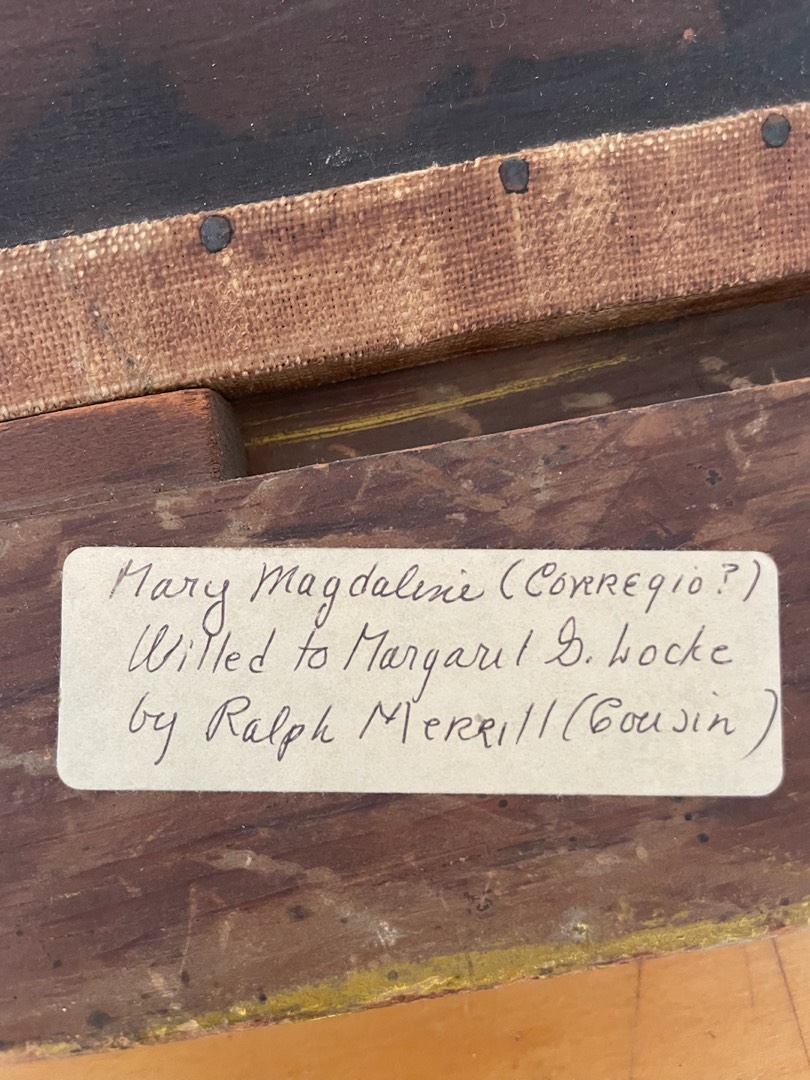 Mary Magdalene (Corregio?)
Willed to Margaret G. Locke
by Ralph Merrill (Cousin)